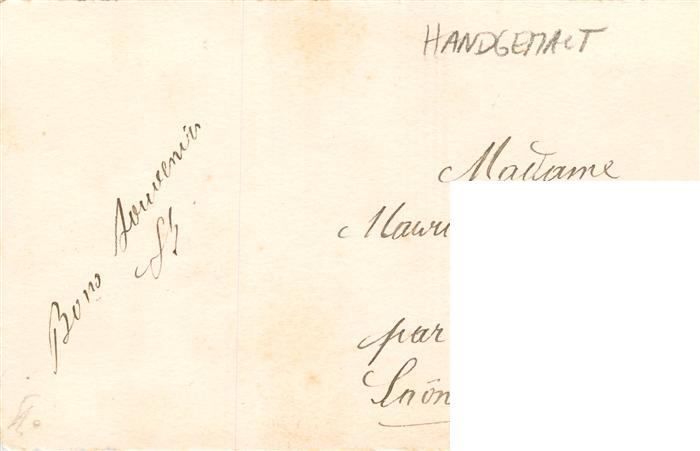 HANDGEMALT
Bons Souvenirs
Madame
Mauri
par